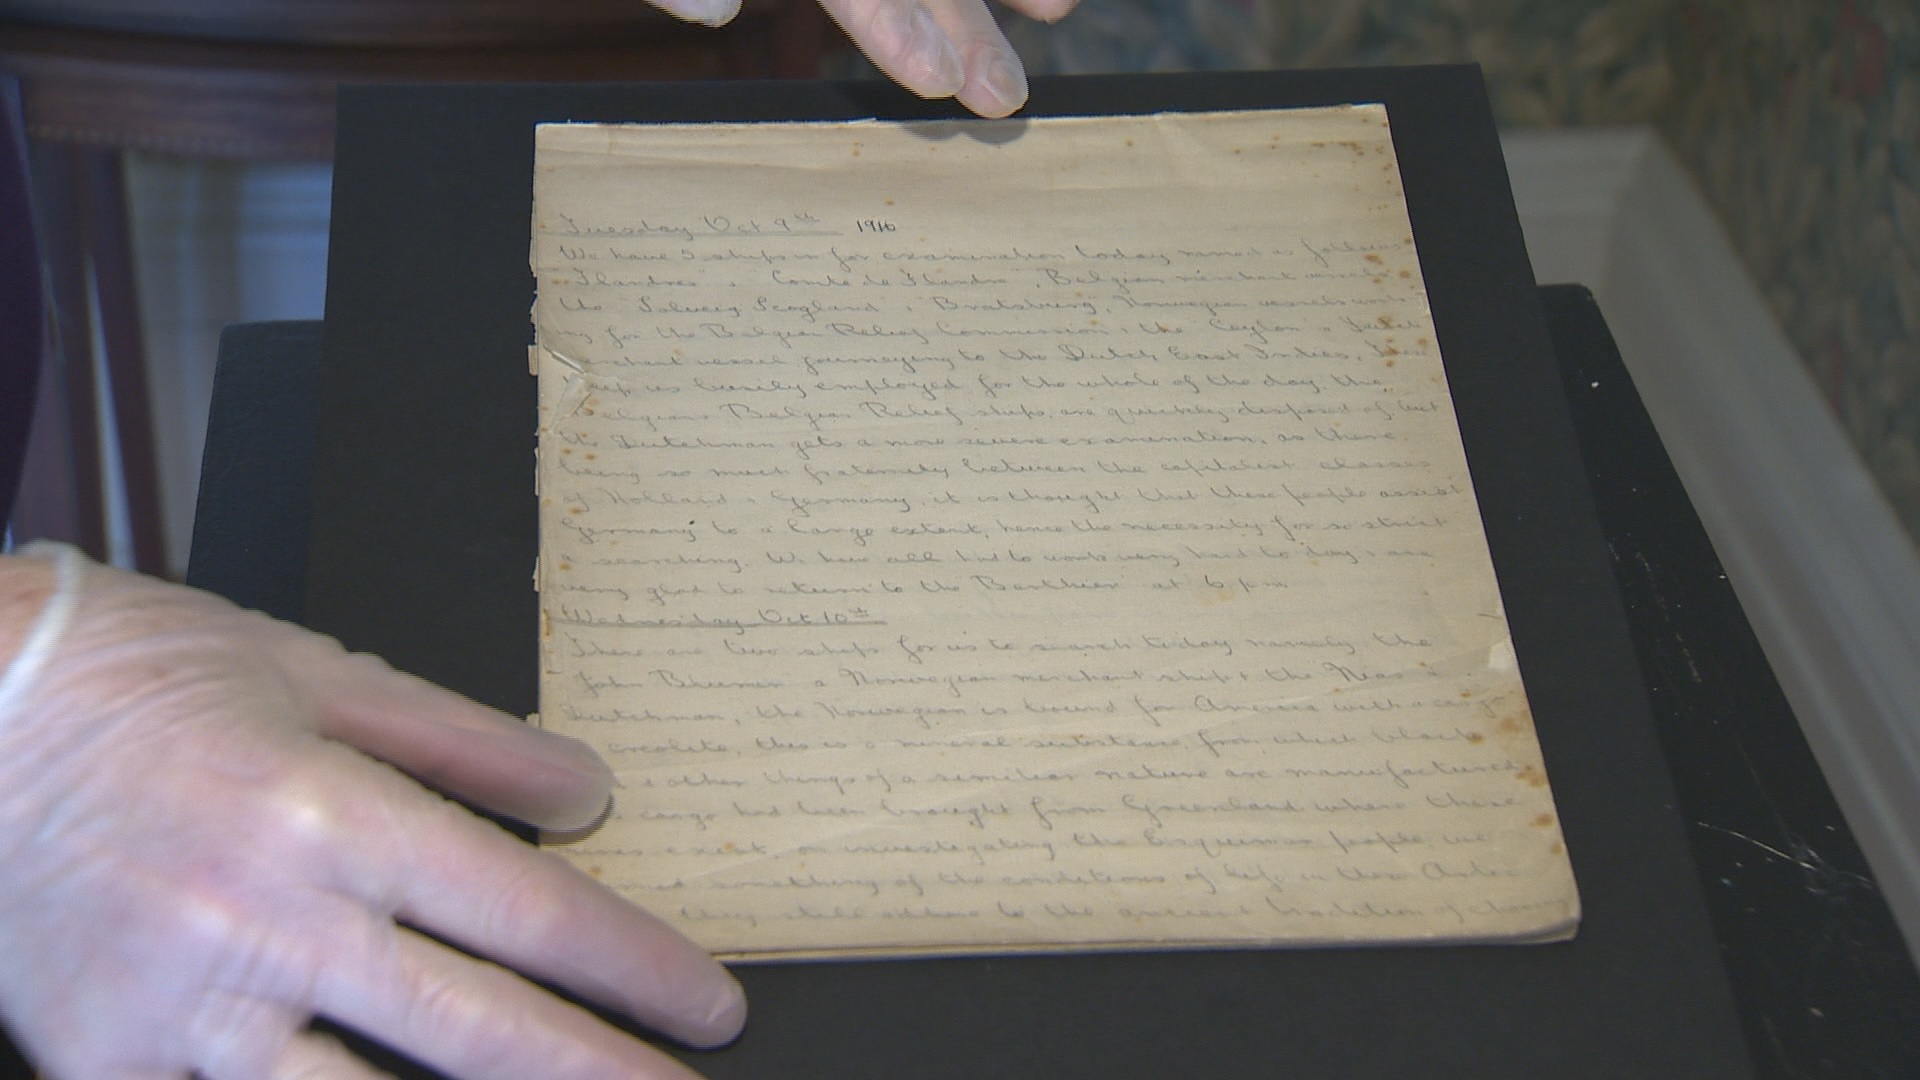 Tuesday Oct 9th 1916
We have 5 ships in for examination today named as follows
"Flandres", "Comte de Flandre", Belgian merchant vessels
the "Solveig Scogland", "Bratsburg", Norwegian vessels work-
ing for the Belgian Relief Commission, & the "Ceylon" a Dutch
merchant vessel journeying to the Dutch East Indies, these
keep us busily employed for the whole of the day, the
Belgian & Belgian Relief ships, are quickly disposed of, but
the Dutchman gets a more severe examination, as there
being so much fraternity between the capitalist classes
of Holland & Germany, it is thought that these people assist
Germany to a large extent, hence the necessity for so strict
a searching. We have all had to work very hard to day, & are
very glad to return to the "Berthier" at 6 p.m.
Wednesday Oct 10th
There are two ships for us to search today namely, the
John a Norwegian merchant ship & the "Nias" a
Dutchman, the Norwegian is bound for America with a cargo
creolite, this is a mineral substance, from which
& other things of a similiar nature are manufactured
cargo had been brought from Greenland where these
mines exist, on investigating the Esquimos people, we
something of the conditions of life in these Artic
they still adhere to the ancient tradition of